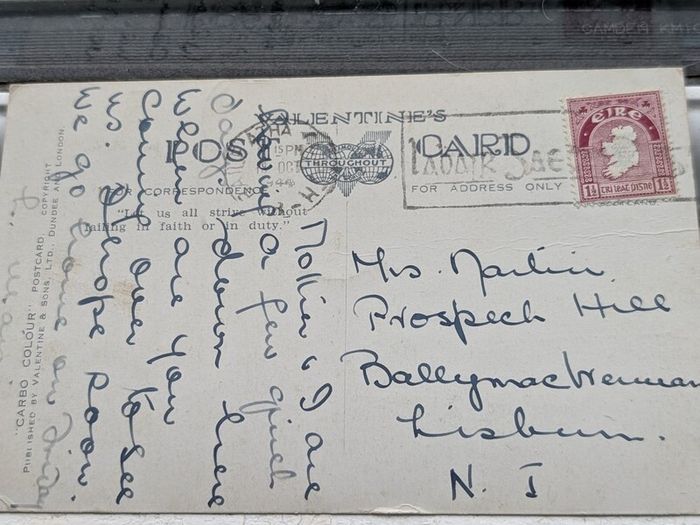 CAMDEN
VALENTINE'S
POST CARD
THROUGHOUT
FOR CORRESPONDENCE
FOR ADDRESS ONLY
"Let us all strive without
failing in faith or in duty."
"CARBO COLOUR" POSTCARD COPYRIGHT
PUBLISHED BY VALENTINE & SONS, LTD., DUNDEE AND LONDON.
ÉIRE
1½ 1½
LABAIR GAE
ATHA
15PM
OCT
Mother & I are
staying a few quiet
days down here
When are you
coming over to see
us. I hope soon.
We go home on Friday
Mrs. Martin
Prospect Hill
Lisburn.
N. I